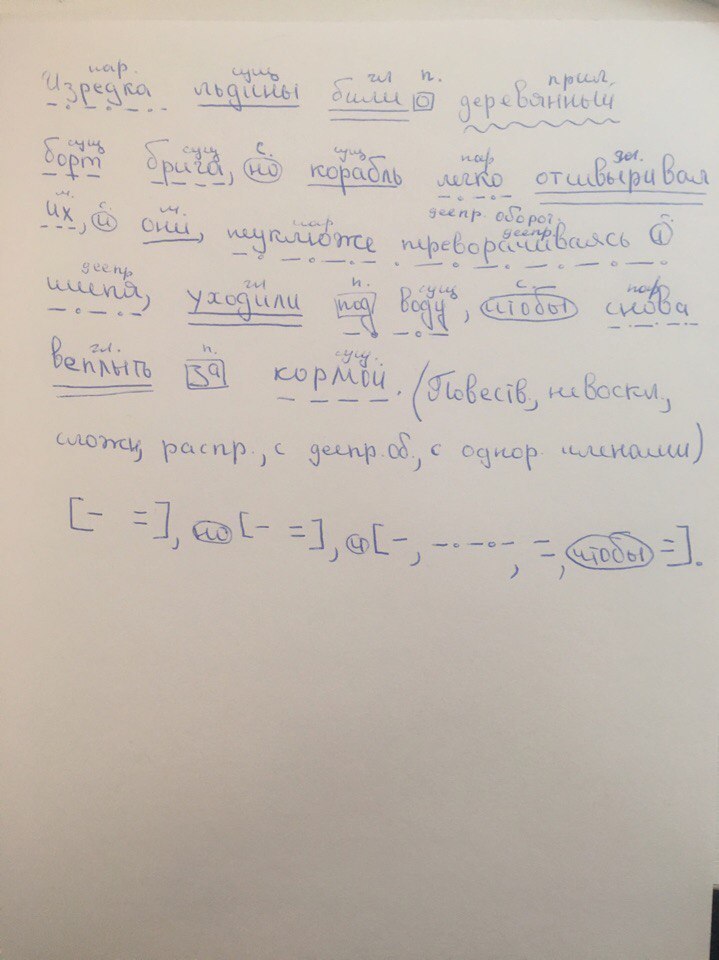 нар. сущ гл п. прил.
Изредка льдины били о деревянный
сущ сущ с. сущ нар гл.
борт брига, но корабль легко отшвыривал
м. с. м. нар деепр. оборот. деепр. с.
их, и они, неуклюже переворачиваясь и
деепр гл п. сущ с. нар
шипя, уходили под воду, чтобы снова
гл. п. сущ.
всплыть за кормой. (Повеств, невоскл,
сложн, распр., с деепр.об., с однор. членами)
[- =], но [- =], и [-, -.-.-.-, =, чтобы =].